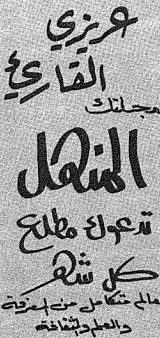 عزيزي
القارئ
مجلتك
المنهل
تدعوك مطلع
كل شهر
عالم متكامل من المعرفة
والعلم والثقافة